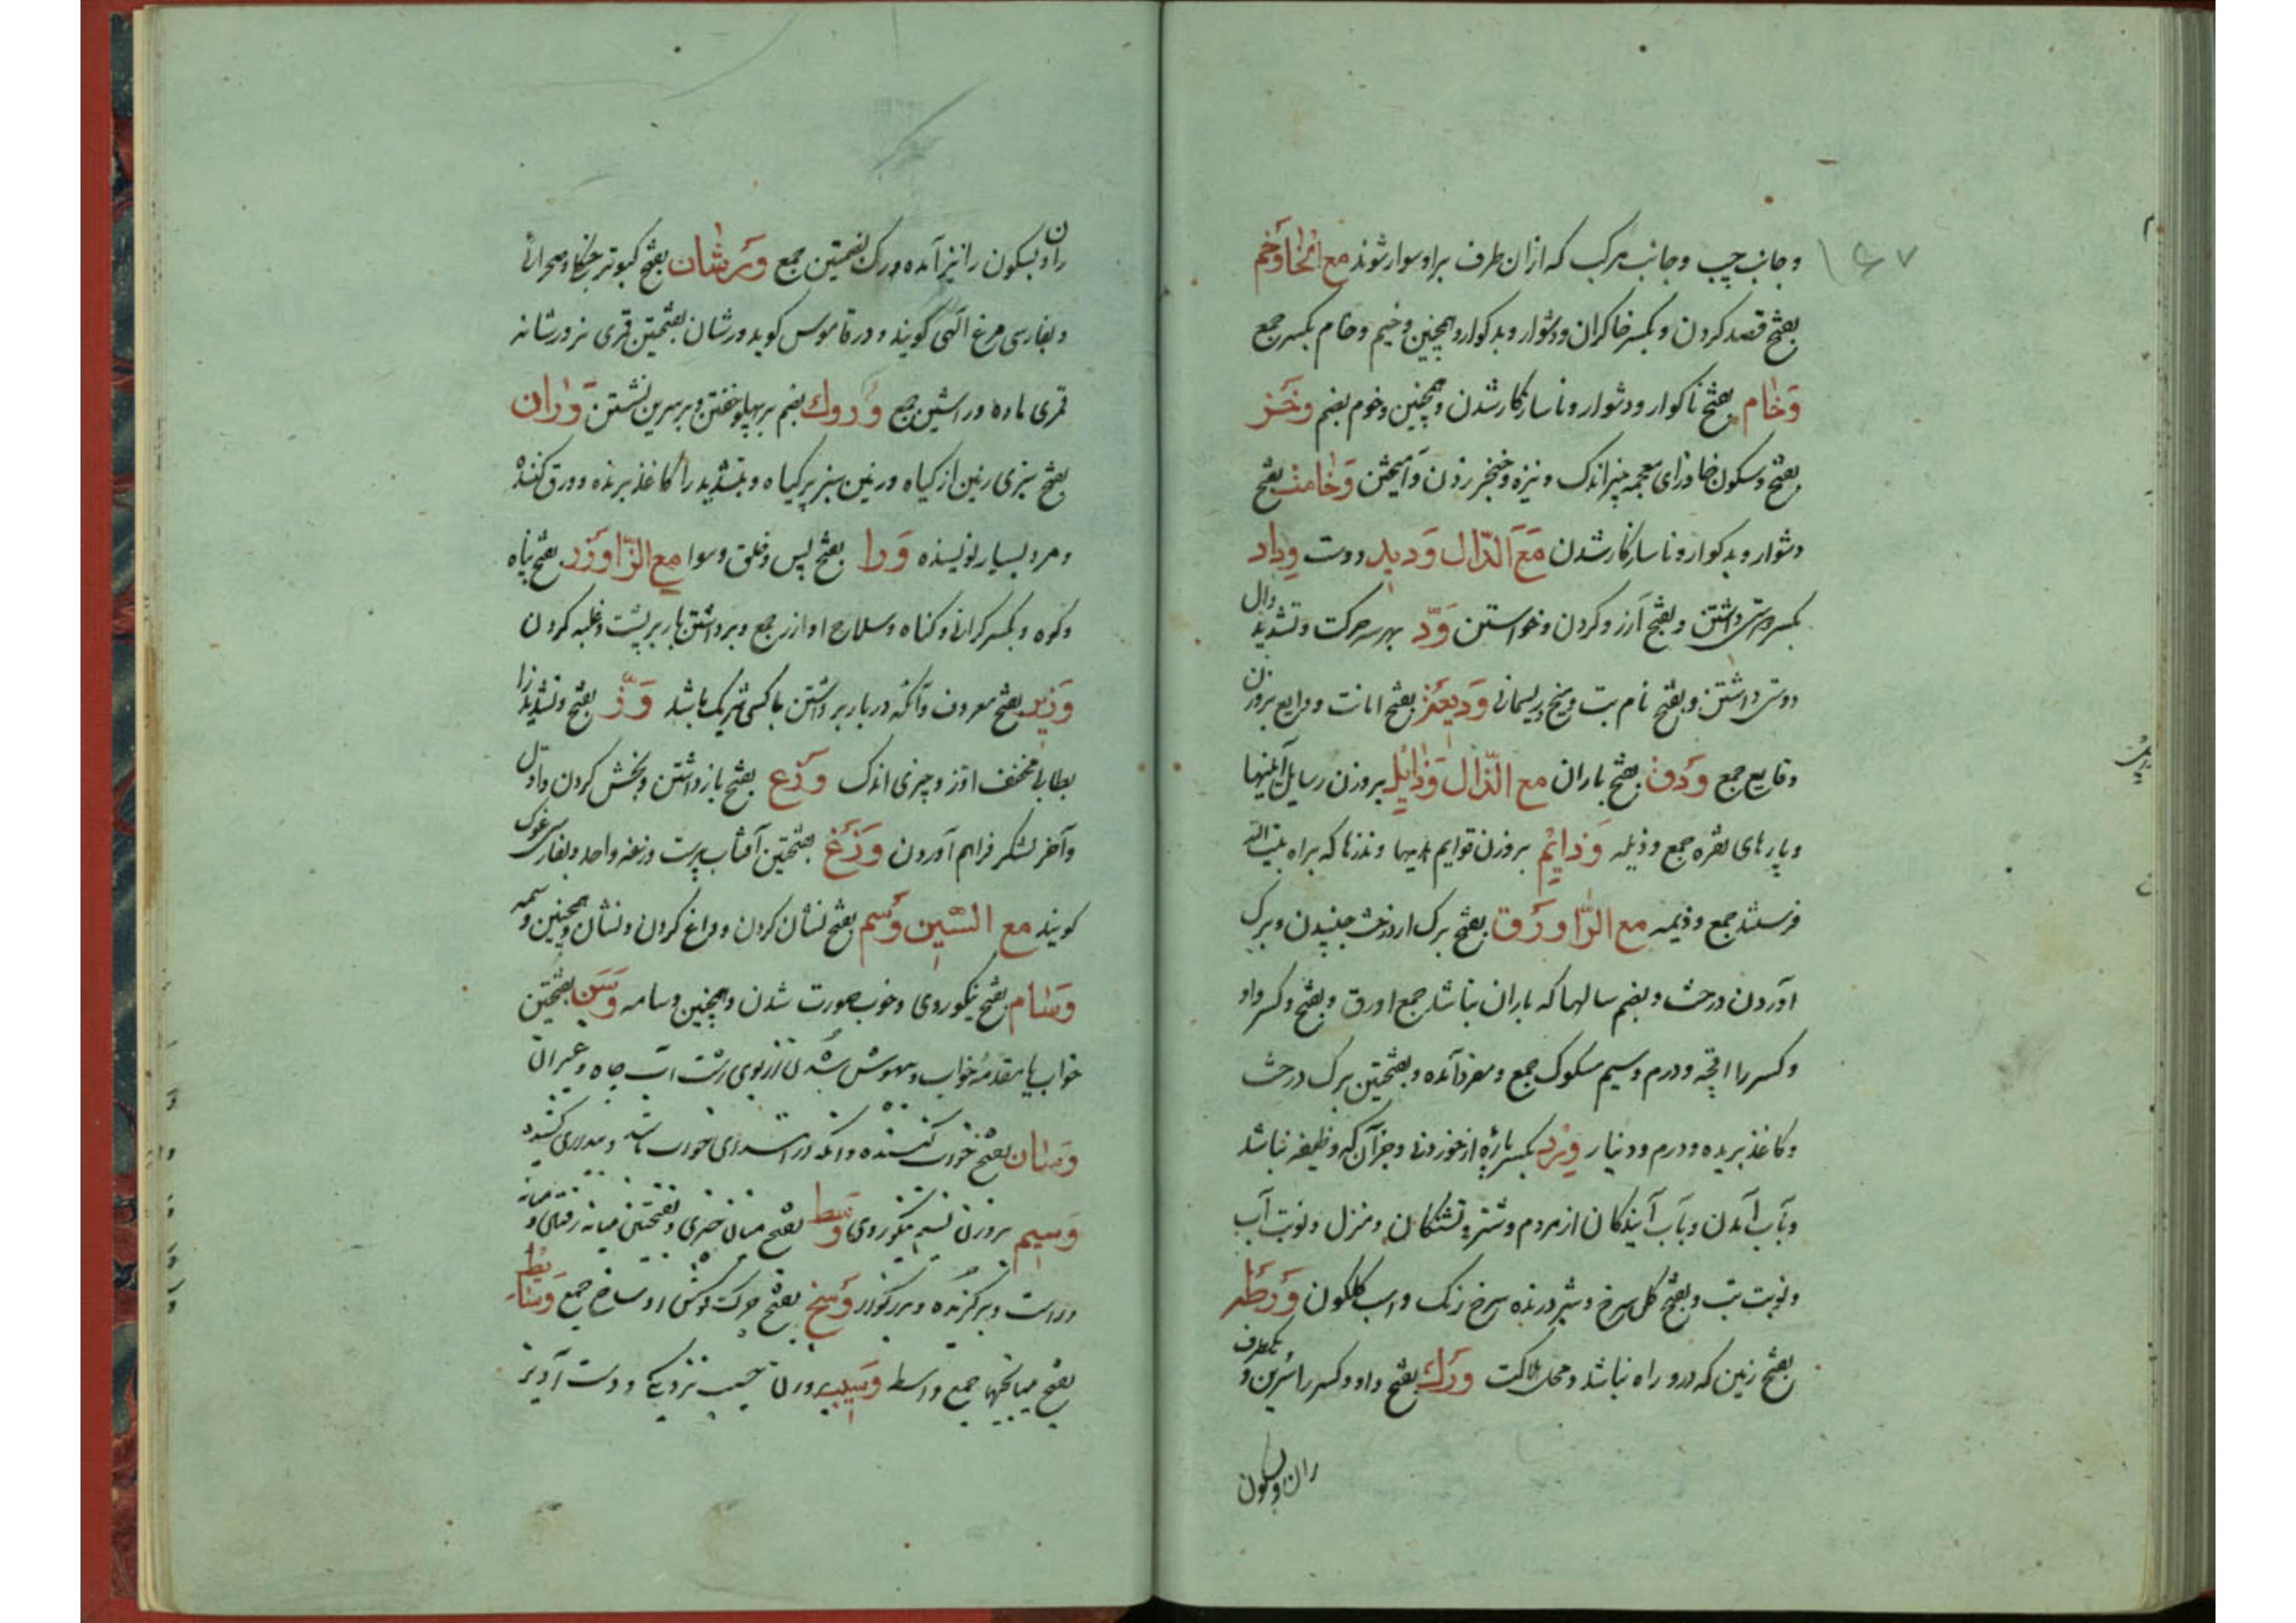 وجانب چپ وجانب مرکب که ازان طرف براو سوار شوند مع الخا وخم
بفتح قصد کردن وبکسر خا کران ودشوار وبدکوار وهمچنین وخیم وخام بکسر جمع
وخام بفتح ناکوار ودشوار وناسازکار شدن وهمچنین وخوم بضم وخز
بفتح وسکون خا وزای معجمه چیز اندک ونیزه وخنجر زدن وآمیختن وخامت بفتح
دشوار وبدکوار وناسازکار شدن مع الدال ودید دوست وداد
بکسر دوستی داشتن وبفتح آرزو کردن وخواستن ود بهر سه حرکت وتشدید دال
دوستی داشتن وبفتح نام بت ومیخ وریسمانی ودیعت بفتح امانت ودایع بروزن
وقایع جمع ودق بفتح باران مع الذال وذایل بروزن رسایل آیینها
وپارهای نقره جمع وذیله وذایم بروزن قوایم هدیها ونذرها که براه بیت الله
فرستند جمع وذیمه مع الرا ورق بفتح برک از درخت چنیدن وبرک
آوردن درخت وبضم سالها که باران نباشد جمع اورق وبفتح وکسر واو
وکسر را اقچه ودرم وسیم مسکوک جمع ومفرد آمده وبفتحتین برک درخت
وکاغذ بریده ودرم ودینار ورد بکسر پاره از خوردنی وجز آن که وظیفه باشد
وبآب آمدن وبآب آیندکان از مردم وشتر وتشنکان ومنزل ونوبت آب
ونوبت تب وبفتح کل سرخ وشیر درنده سرخ رنک واسب کلکون ورطه
بفتح زمین که درو راه نباشد ومحل هلاکت ورک بفتح واو وکسر را سرین و یکطرف
ران وبسکون
ران وبسکون را نیز آمده ورک بضمتین جمع ورشان بفتح کبوتر جنکلی وصحرائی
وبفارسی مرغ الهی کویند ودر قاموس کوید ورشان بفتحتین قمری نر ورشانه
قمری ماده وراشین جمع وروک بضم بر پهلو خفتن وبر سرین نشستن وران
بفتح سبزی زمین از کیاه وزمین سبز پر کیاه وبتشدید را کاغذ برنده وورق کننده
ومرد بسیار نویسنده ورا بفتح پس وخلق وسوا مع الزا وزر بفتح پناه
وکوه وبکسر کرانی وکناه وسلاح اوزار جمع وبرداشتن بار بر پشت وغلبه کردن
وزیر بفتح معروف وآنکه در بار برداشتن با کسی شریک باشد وز بفتح وتشدید زا
بط اوز وچیزی اندک وزع بفتح بازداشتن وبخش کردن واول
وآخر لشکر فراهم آوردن وزغ بفتحتین آفتاب پرست وزغه واحد وبفارسی غوک
کویند مع السین وسم بفتح نشان کردن وداغ کردن ونشان وهمچنین وسمه
وسام بفتح نیکوروی وخوب صورت شدن وهمچنین وسامه وسن بفتحتین
خواب یا مقدمه خواب وبیهوش شدن از بوی زشت آب چاه وغیر آن
وسنان بفتح خواب کننده وآنکه در ابتدای خواب باشد
وسیم بروزن نسیم نیکوروی وسط بفتح میان چیزی وبفتحتین میانه
وراست وبرکزیده وبزرکوار وسخ بفتح چرک اوساخ جمع وسایط
بفتح میانجیها جمع واسط وسیب بروزن نزدیکی ودست آویز